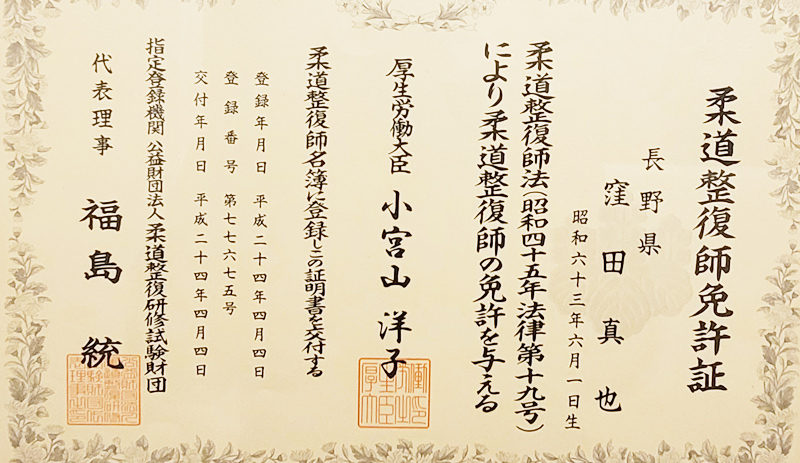 柔道整復師免許証
長野県
窪田真也
昭和六十三年六月一日生
柔道整復師法(昭和四十五年法律第十九号)
により柔道整復師の免許を与える
厚生労働大臣 小宮山洋子
柔道整復師名簿に登録しこの証明書を交付する
登録年月日 平成二十四年四月四日
登録番号 第七七六七五号
交付年月日 平成二十四年四月四日
指定登録機関 公益財団法人柔道整復研修試験財団
代表理事 福島統